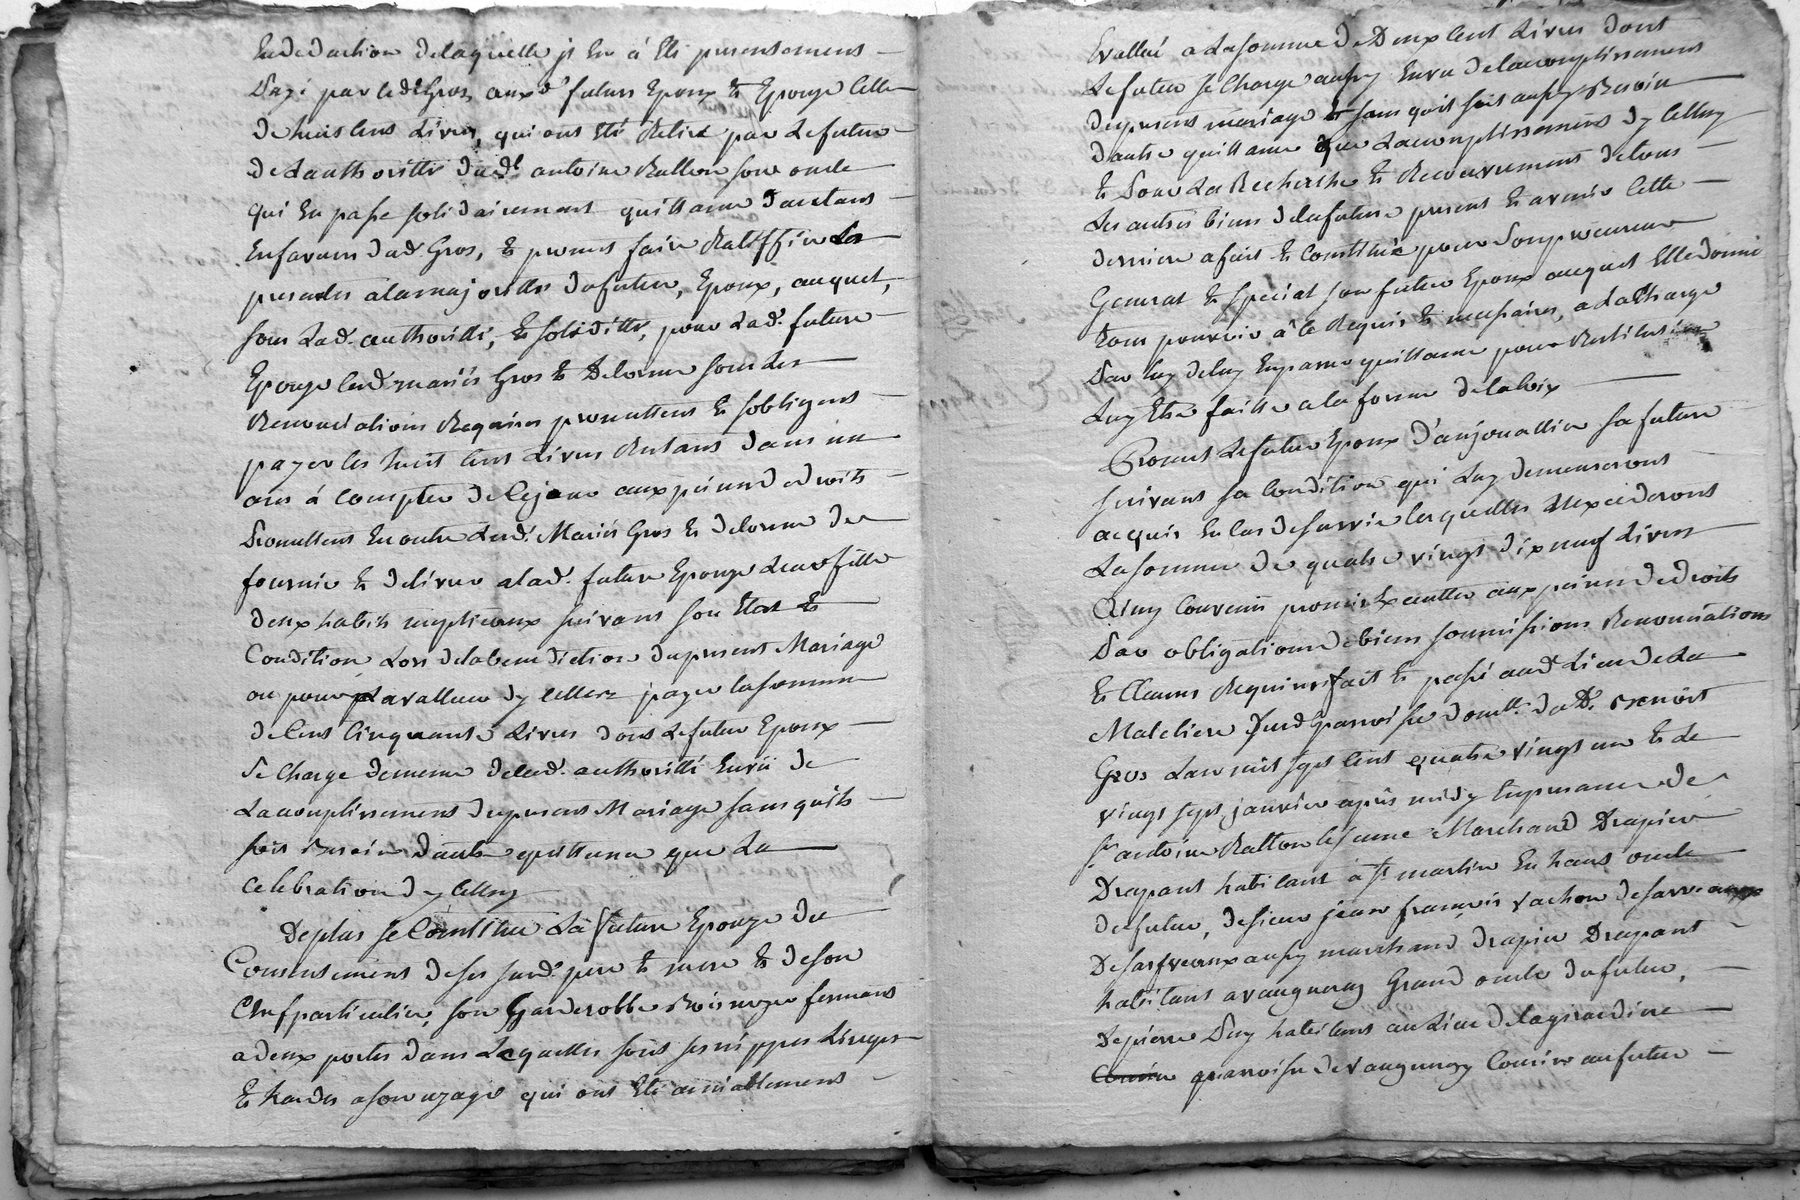 En deduction de laquelle il en a Eté presentement
payé par led Gros, auxd. futurs Epoux et Epouze celle
de huit cens Livres, qui ont Eté Retiré par le futur
de L'authoritté dud. antoine Ratton son oncle
qui En passe solidairement quittance d'autant
En faveur dud. Gros, et promet faire Ratiffier les
presentes a la majoritté du futur, Epoux, auquel,
sous Lad. authoritté, Et soliditté, pour Lad. future
Epouze lesd. mariés Gros et Delorme sous Les
Renonciations Requises promettent Et sobligent
payer les huit cens Livres Restant dans un
ans à compter de Ce jour aux peines de droits
Promettent En outre Lesd. Mariés Gros Et delorme de
fournir Et delivrer a lad. future Epouze Leur fille
deux habits nuptieaux suivant son Etat Et
Condition Lors de la benediction du present Mariage
ou pour La valleur d'y celles payer la somme
de Cent Cinquante Livres dont Le futur Epoux
Se Charge de meme de lad. authoritté En vû de
L'acomplissement du present Mariage sans quils
soit Besoin d'autre quittance que La
Celebration d'y Celluy
De plus se Constitue La future Epouze du
Consentement de ses susd. pere Et mere Et de son
Chef particulier, son Garderobbe Bois noyer fermant
a deux portes dans Lequelle sont ses nippes Linges
Et hardes a son uzage qui ont Eté amiablement
Evallué a La somme de Deux Cent Livres dont
Le futur se Charge aussy En vu de lacomplissement
du present mariage Et sans quil soit aussy Besoin
d'autre quittance que Lacomplissement d'y Celluy
Et Pour La Recherche Et Recouvrement de tous
Les autres biens de la future present Et avenir Cette
derniere a fait Et Constitué pour Son procureur
General Et special son futur Epoux auquel Elle donne
tous pouvoir à ce Requis Et necessaires, a La Charge
Par luy de luy En passer quittance pour Restitution
Luy Etre faitte a la forme de la loix
Promet Le futur Epoux d'anjouallier sa future
suivant sa Condition qui Luy demeureront
acquis En Cas de survie lesquelles N'excederont
La somme de quatre vingt dix neuf Livres
Ainy Convenû promis Executter aux peines de droits
Par obligations de biens soumissions Renonciations
Et Clauses Requises fait Et passé aud Lieu de La
Maletiere susd parroisse domlle. dud. Benoist
Gros L'an mil sept Cent quatre vingt un Et Le
vingt sept, janvier apres midy En presence de
sr antoine Ratton le jeune Marchand Drapier
Drapant habitant à St martin En haut oncle
du futur, de sieur jean françois vachon
aussy marchand drapier Drapant
habitant a vaugneray Grand oncle du futur,
De pierre Puy habitant au Lieu de la girardiere
parroisse de vaugneray Cousin au futur